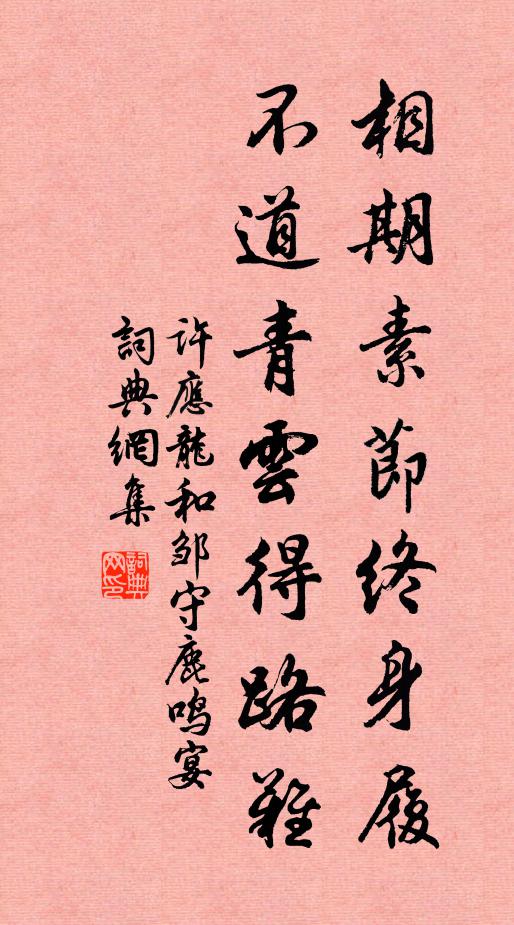 相期素節終身履
不道青雲得路難
許應龍和邹守鹿鳴宴
詞典網集
詞典网印